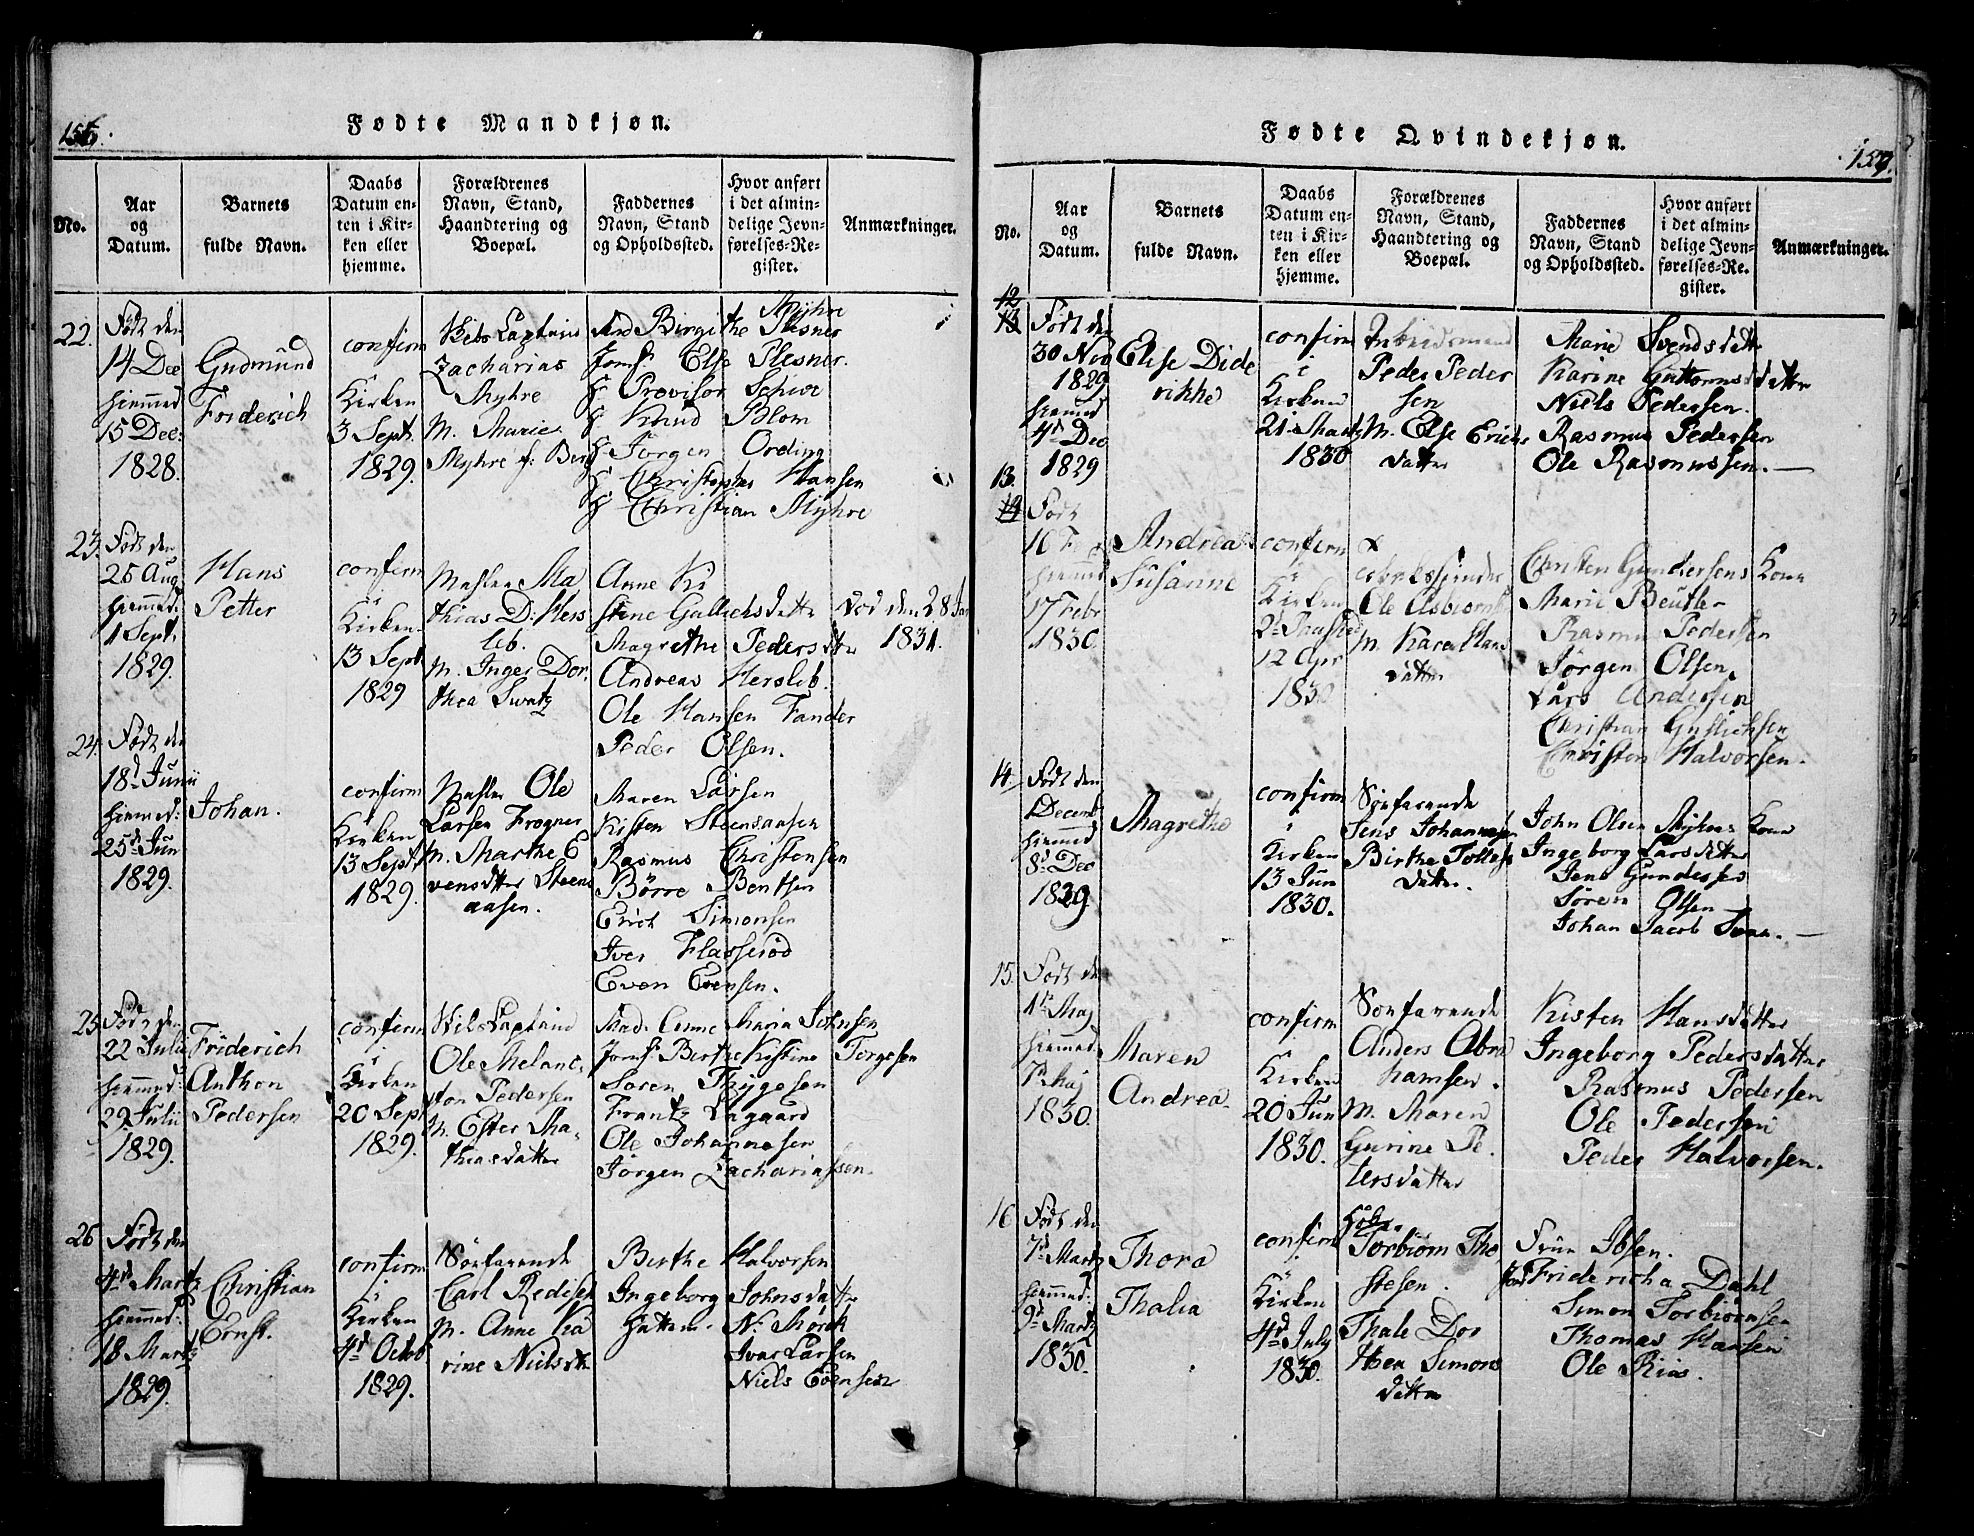 156.
Fødte Mandkjøn.
No.
Aar og Datum.
Barnets fulde Navn.
Daabs Datum enten i Kirken eller hjemme.
Forældrenes Navn, Stand, Haandtering og Boepæl.
Faddernes Navn, Stand og Opholdssted.
Hvor anført i det almindelige Jevnførelses-Register.
Anmærkninger.
22.
Født den
14 Dec
hiemmed
15 Dec:
1828.
Gudmund
Friderich
confirm
i
Kirken
3 Sept.
1829.
Skibs Captain
Zacharias
Myhre
M. Marie
Myhre f: Berg
Mad Birgithe Myhre
Plesner
Jomf. Else Plesner.
H Provisor Schive
H Knud Blom
H Jørgen Ording
H. Christopher Hansen
H Christian Myhre
23.
Født den
25 Aug
hiemmed:
1 Sept.
1829.
Hans
Petter
confirm
i
Kirken
13 Sept
1829
Matha
thias D: Hers
leb.
M. Inger Dor
thea Swatz
Anne Ki
stene Gulichsdatter
Magrethe Pedersdtr
Andreas Hersleb.
Ole Hansen Tander
Peder Olsen.
Død den 28 Jan
1831.
24.
Født den
18d Junii
hiemmed:
25d Jun
1829.
Johan.
confirm
i
Kirken
13 Sept
1829.
Ole
Larsen Frogner
M. Marthe E
vensdtter Steens
aasen.
Maren Larsen
Kisten Steensaasen
Rasmus Christensen
Børre Bentsen
Erich Simonsen
Iver Flasserød
Even Evensen.
25
Født den
22 Julii
hiemmed:
29 Julii
1829.
Friderich
Anthon
Pedersen
confirm
i
Kirken
20 Sept
1829.
Skibs Captain
Ole Melanc
ton Pedersen
M. Ester Ma
thiasdatter
Mad. Anne Maria Johnsen
Jomf. Berthe Kistine Torgesen
Soren Thygesen
Frantz Lagaard
Ole Johannesen
Jørgen Zachariassen.
26
Født den
4d Martz
hiemmed:
18 Martz
1829.
Christian
Ernst.
confirm
i
Kirken
4d Octob
1829.
Søefarende
Carl Redisch
M. Anne Ka
rine Nielsdtr
Berthe Halvorsen
Ingeborg Johnsdatter
N. Mørch
Ivar Larsen
Niels Evensen
157.
Fødte Qvindekjøn.
No.
Aar og Datum.
Barnets fulde Navn.
Daabs Datum enten i Kirken eller hjemme.
Forældrenes Navn, Stand, Haandtering og Boepæl.
Faddernes Navn, Stand og Opholdssted.
Hvor anført i det almindelige Jevnførelses-Re-gister.
Anmærkninger.
12
13
Født den
30 Nov
1829
hiemmed
4d Dec
1829
Elise Dide
rikke
confirm
i
Kirken
21 Martz
1830
Peder Peder
sen
M. Else Erichs
datter
Marie Svendsdatter
Karine Guttormsdatter
Niels Pedersen.
Rasmus Pedersen
Ole Rasmussen.
13.
14
Født
hiemmed
17 Febr
1830.
Andrea
Susanne
confirm
i
Kirken
12 Apr
1830
Ole Asbiørns
M Karen Hans
datter
Carsten Gundersens Kone
Marie Beutler
Rasmus Pedersen
Jørgen Olsen
Lars Andersen
Christian Gullichsen
Christen Halvorsen.
14.
Født den
Decemb
hiemmed
8d Dec
1829
Magrethe
confirm
i
Kirken
13 Jun
1830.
Søefarende
Jens Johannesen
Birthe Tollefs
datter.
John Olsen Myhres Kone
Ingeborg Larsdatter
Jens Gundersen
Søren Olsen
Johan Jacob Svan.
15.
Født den
1d Maj
hiemmed
7d Maj
1830.
Maren
Andrea.
confirm
i
Kirken
20 Jun
1830.
Søefarende
Anders Abra
hamsen.
M. Maren
Gurine Pe
tersdatter
Kisten Hansdatter
Ingeborg Pedersdatter
Rasmus Pedersen
Ole Pedersen
Peder Halvorsen.
16
Født den
7d Martz
hiemmed:
9d Martz
1830.
Thora
Thalia
confirm
i
Kirken
4d July
1830.
Torbiørn Tho
stesen.
Thale Dor
thea Simons
datter
Frue Ibsen.
Jomf Fridericha Dahl
Simon Torbiørnsen
Thomas Hansen
Ole Riis.